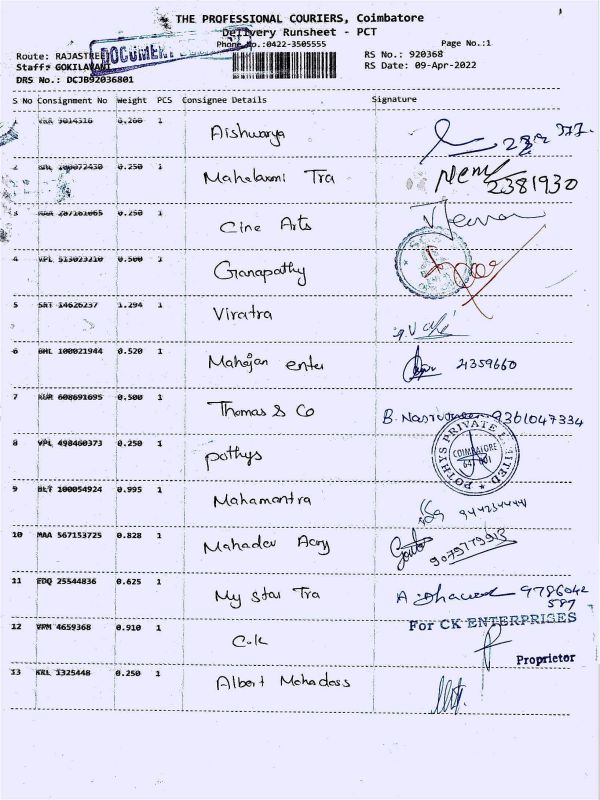 THE PROFESSIONAL COURIERS, Coimbatore
Delivery Runsheet - PCT
Phone No.:0422-3505555 Page No.:1
Route: RAJASTREE RS No.: 920368
Staff: GOKILAVANI RS Date: 09-Apr-2022
DRS No.: DCJB92036801
DOCUMENT
S No Consignment No Weight PCS Consignee Details Signature
1 9014316 0.260 1 Aishwarya
2 100072430 0.250 1 Mahelaxmi Tra 2381930
3 MAA 287161065 0.250 1 Cine Arts
4 VPL 513023210 0.500 1 Ganapathy
5 SRT 14626237 1.294 1 Viratra
6 BHL 100021944 0.520 1 Mahajan enter 4359660
7 KUR 608691695 0.500 1 Thomas & Co B. 9361047334
8 VPL 498460373 0.250 1 pothys
POTHYS PRIVATE LIMITED
COIMBATORE
641 001
9 BLT 100054924 0.995 1 Mahamantra
10 MAA 567153725 0.828 1 Mahadev Acry 9079779913
11 EDQ 25544836 0.625 1 My star Tra A. 9786042
587
12 VPM 4659368 0.910 1 C.K For CK ENTERPRISES
Proprietor
13 KRL 1325448 0.250 1 Albert Mohadoss